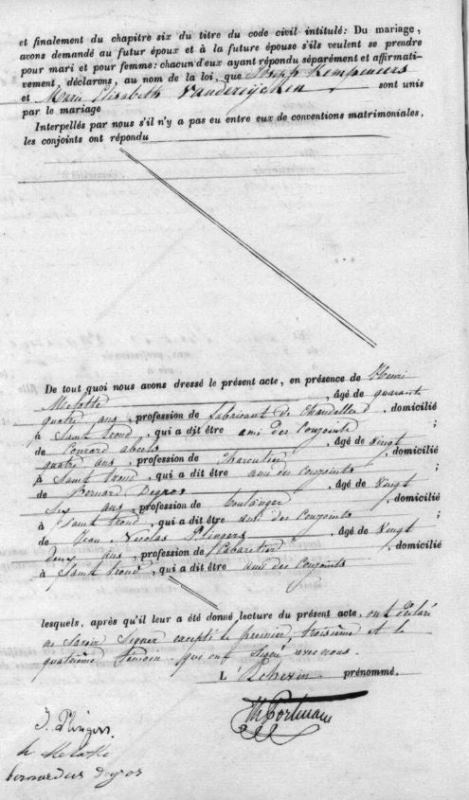 et finalement du chapitre six du titre du code civil intitulé: Du mariage,
avons demandé au futur époux et à la future épouse s'ils veulent se prendre
pour mari et pour femme: chacun d'eux ayant répondu séparément et affirmati-
vement, déclarons, au nom de la loi, que Joseph Kempeneers
et Marie Elisabeth Vandereÿcken sont unis
par le mariage
Interpellés par nous s'il n'y a pas eu entre eux de conventions matrimoniales,
les conjoints ont répondu
De tout quoi nous avons dressé le présent acte, en présence de Henri
Melotte, âgé de quarante
quatre ans, profession de fabricant de Chandelles, domicilié
à Saint trond, qui a dit être ami des Conjoints;
de Conrard Aberts, âgé de vingt
quatre ans, profession de Charcutier, domicilié
à Saint trond, qui a dit être ami des Conjoints;
de Bernard Degros, âgé de vingt
six ans, profession de boulanger, domicilié
à Saint trond, qui a dit être ami des Conjoints;
de Jean Nicolas Plingers, âgé de vingt
deux ans, profession de Cabaretier, domicilié
à Saint trond, qui a dit être ami des Conjoints
lesquels, après qu'il leur a été donné lecture du présent acte, ont déclaré
ne savoir Signer excepté le premier, troisième et le
quatrième témoin qui ont signé avec nous.
L'Echevin prénommé.
J. Plingers
h Melotte
bernardus degros